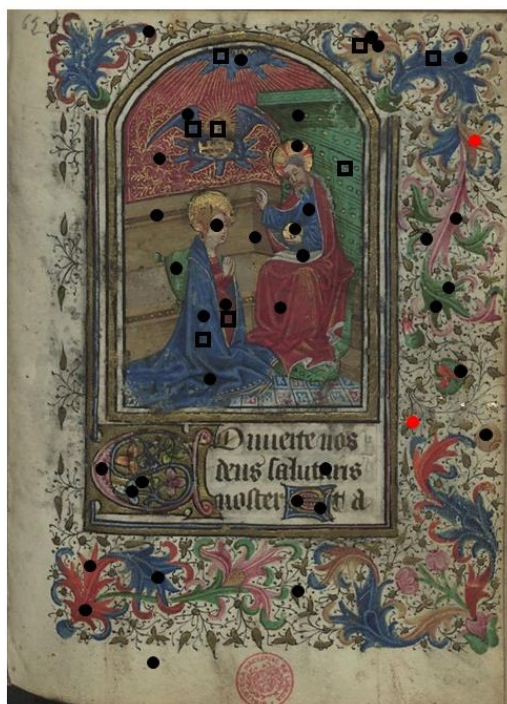 Conuerte nos
deus salutaris
noster Et a